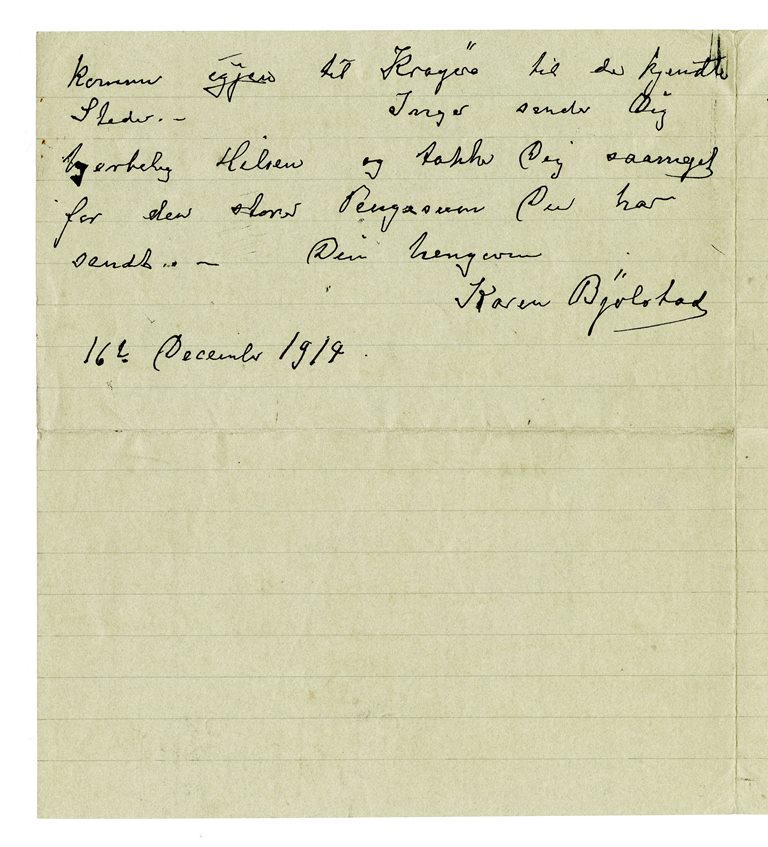 kommer igjen til Kragerö til de kjendte
Steder. -          Inger sender Dig
hjertelig Hilsen og takker Dig saameget
for den store Pengesum Du har
sendt. . -     Din hengivne
Karen Bjölstad
16de December 1914.